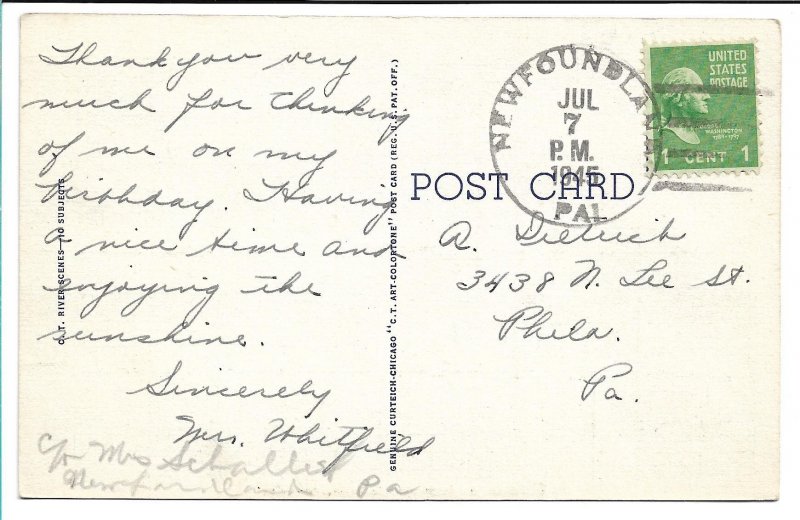 Thank you very
much for thinking
of me on my
birthday. Having
a nice time and
enjoying the
sunshine.
Sincerely
Mrs. Whitfield
c/o Mrs
Newfoundland Pa
C.T. RIVER SCENES—10 SUBJECTS
GENUINE CURTEICH-CHICAGO "C.T. ART-COLORTONE" POST CARD (REG. U.S. PAT. OFF.)
NEWFOUNDLAND
JUL
7
P.M.
1945
PA
UNITED
STATES
POSTAGE
WASHINGTON
1789-1797
1 CENT 1
POST CARD
A. Dietrich
3438 N. Lee St.
Phila.
Pa.